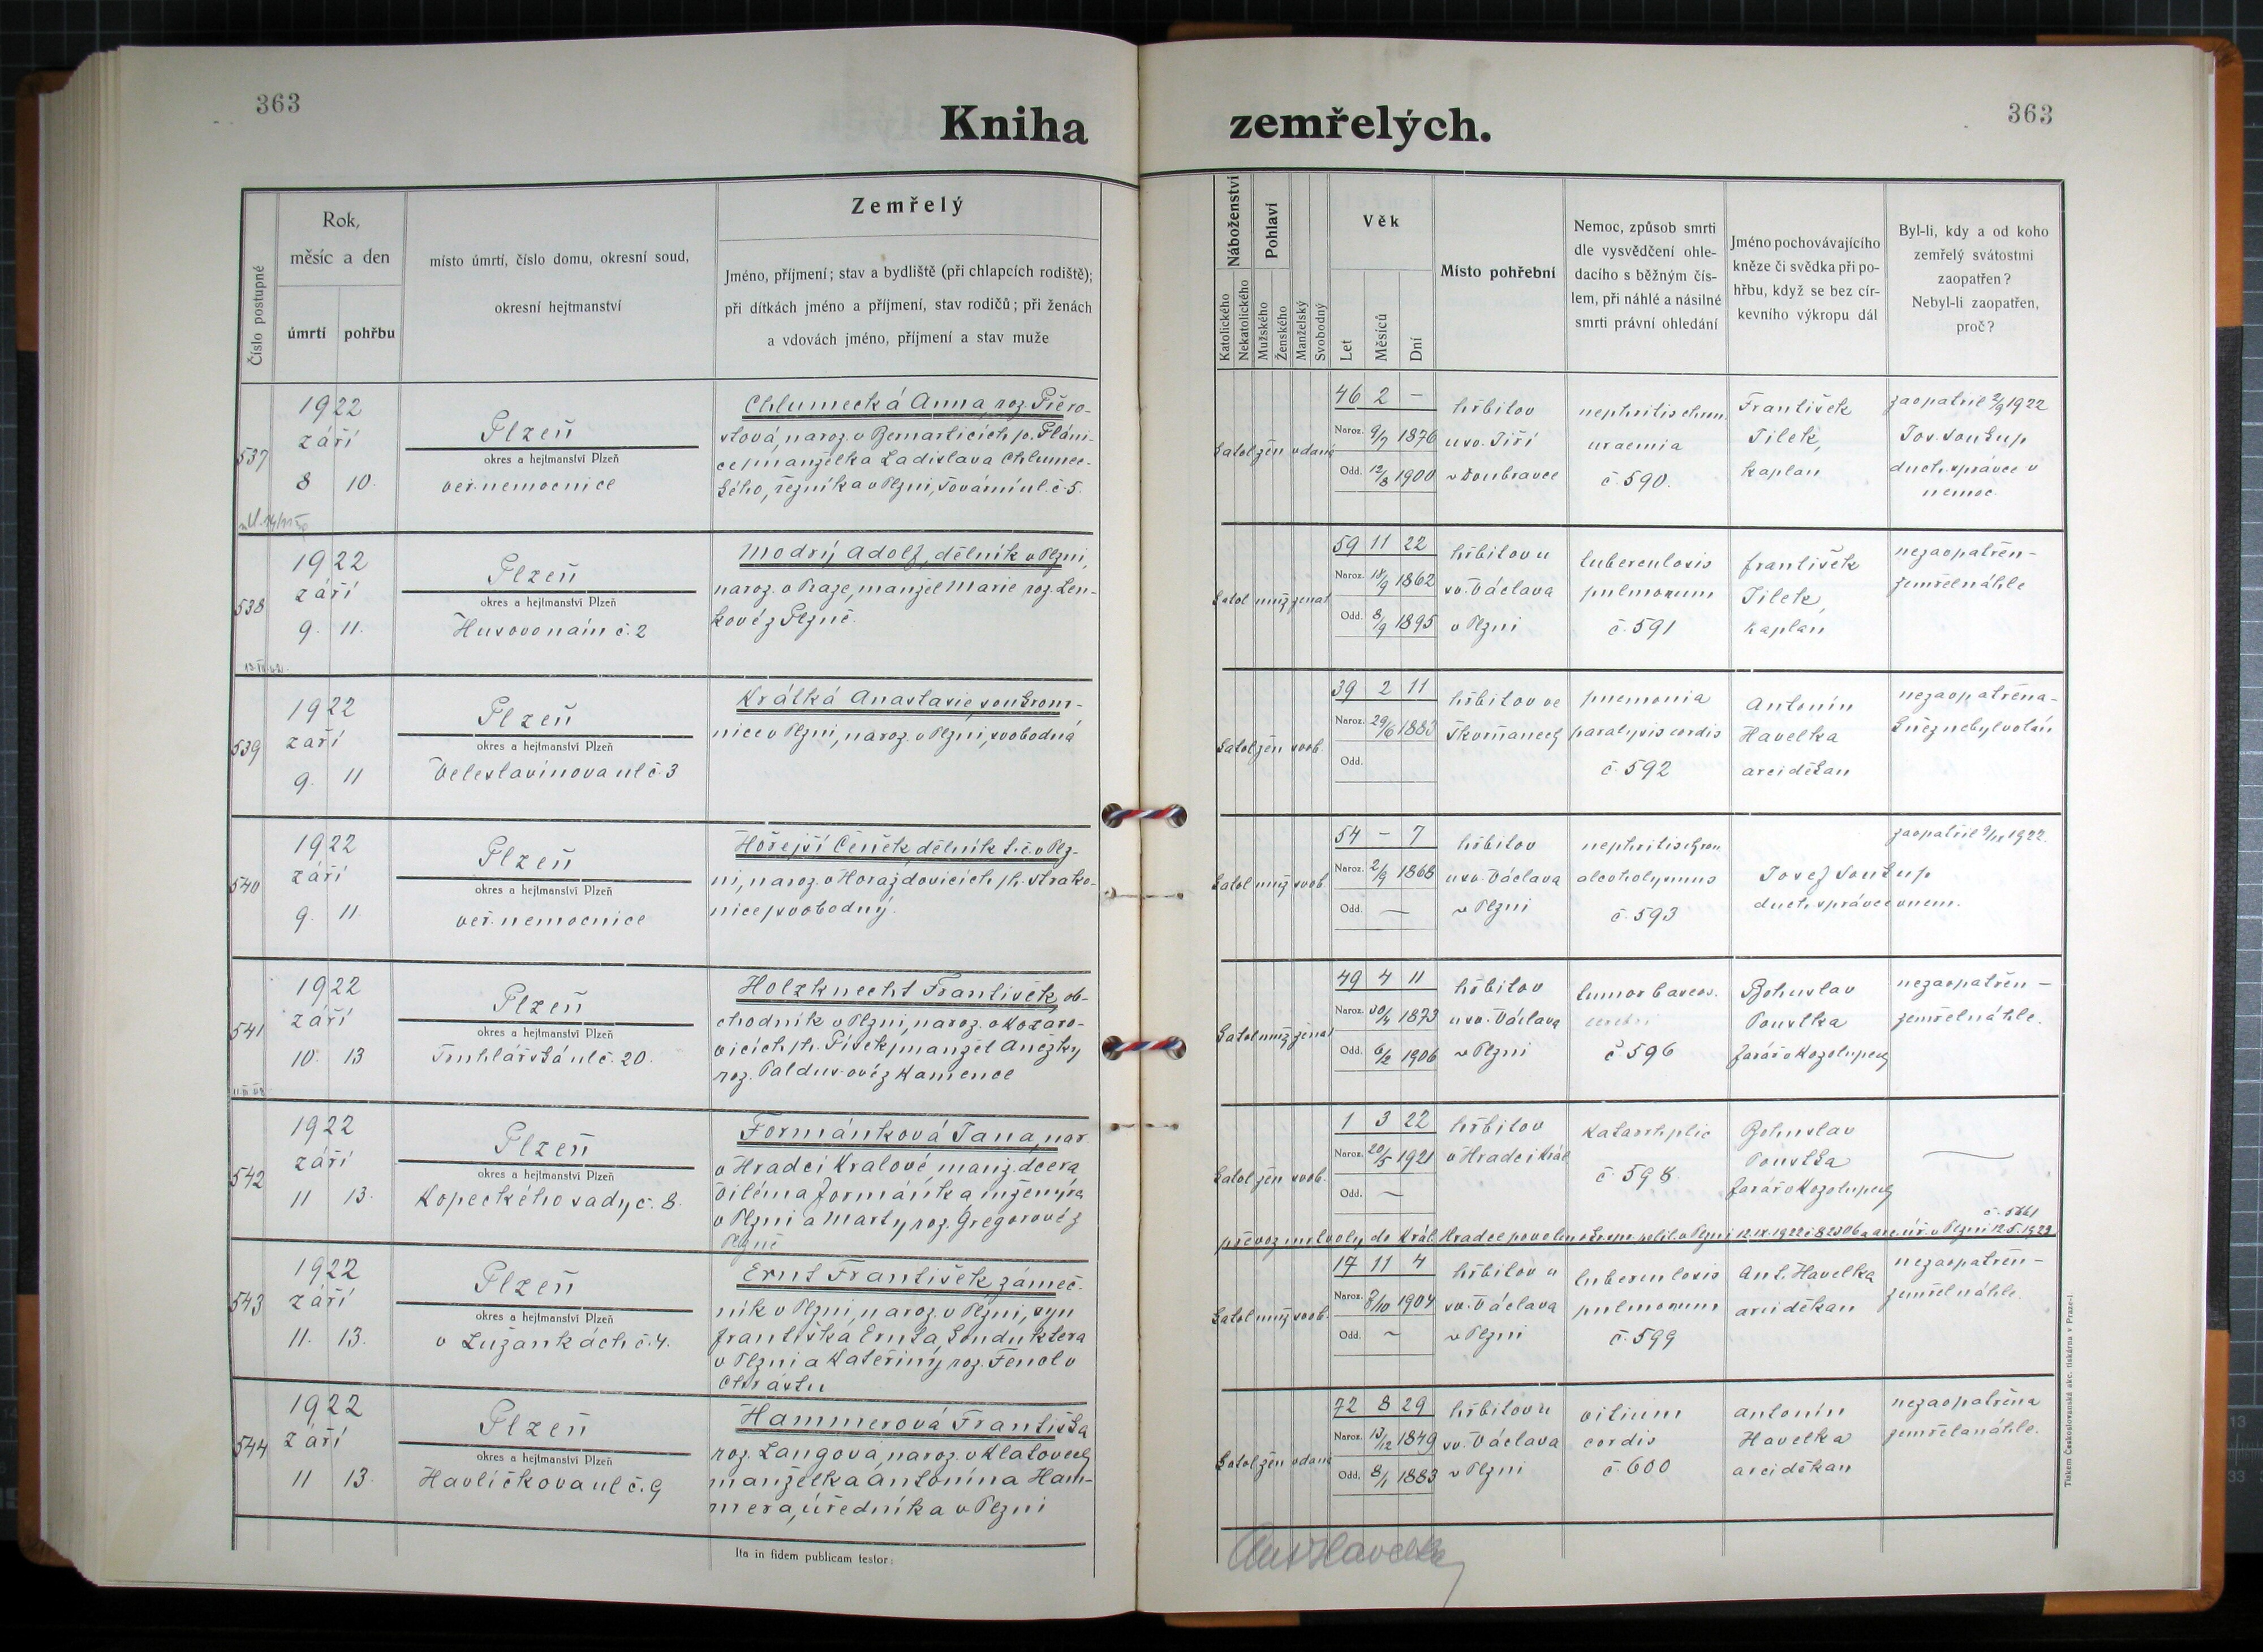 363
Kniha
zemřelých.
363
Číslo postupné
Rok,
měsíc a den
úmrtí
pohřbu
místo úmrtí, číslo domu, okresní soud,
okresní hejtmanství
Zemřelý
Jméno, příjmení; stav a bydliště (při chlapcích rodiště);
při dítkách jméno a příjmení, stav rodičů; při ženách
a vdovách jméno, příjmení a stav muže
Náboženství
Katolického
Nekatolického
Pohlaví
Mužského
Ženského
Manželský
Svobodný
Věk
Let
Měsíců
Dní
Místo pohřební
Nemoc, způsob smrti
dle vysvědčení ohle-
dacího s běžným čís-
lem, při náhlé a násilné
smrti právní ohledání
Jméno pochovávajícího
kněze či svědka při po-
hřbu, když se bez cír-
kevního výkropu dál
Byl-li, kdy a od koho
zemřelý svátostmi
zaopatřen?
Nebyl-li zaopatřen,
proč?
537
1922
září
8 10.
Plzeň
okres a hejtmanství Plzeň
veř. nemocnice
Chlumecká Anna, roz.
manželka Ladislava Chlumec-
kého, řezníka v Plzni, Tovární ul. č. 5.
katol žen vdaná
46 2 –
Naroz. 9/7 1876
Odd. 12/8 1900
hřbitov
u sv. Jiří
v Doubravce
nephritis chron.
uraemia
č. 590.
František
Tilek,
kaplan
zaopatřil 2/9 1922
Jos. Soukup
duch. správce v
nemoc.
538
1922
září
9. 11.
Plzeň
okres a hejtmanství Plzeň
Husovo nám č. 2
Modrý Adolf, dělník v Plzni,
naroz. v Praze, manžel Marie roz. Len-
kové z Plzně.
katol muž ženat
59 11 22
Naroz. 18/9 1862
Odd. 8/9 1895
hřbitov u
sv. Václava
v Plzni
tuberculosis
pulmonum
č. 591
František
Tilek,
kaplan
nezaopatřen –
zemřel náhle
539
1922
září
9. 11
Plzeň
okres a hejtmanství Plzeň
Veleslavínova ul č. 3
Krátká Anastasie, soukrom-
nice v Plzni, naroz. v Plzni, svobodná
katol žen svob.
39 2 11
Naroz. 29/6 1883
Odd.
hřbitov ve
Škvrňanech
pnemonia
paralysis cordis
č. 592
Antonín
Havelka
arciděkan
nezaopatřena –
kněz nebyl volán
540
1922
září
9. 11.
Plzeň
okres a hejtmanství Plzeň
veř. nemocnice
Hořejší Čeněk, dělník t. č. v Plz-
ni, naroz. v Horažďovicích /h. Strako-
nice/ svobodný.
katol muž svob
54 – 7
Naroz. 2/9 1868
Odd. —
hřbitov
u sv. Václava
v Plzni
nephritis chron
alcoholysmus
č. 593
Josef Soukup
duch. správce v nem.
zaopatřil 9/IX 1922.
541
1922
září
10. 13
Plzeň
okres a hejtmanství Plzeň
Truhlářská ul č. 20.
Holzknecht František, ob-
chodník v Plzni, naroz. v Kožaro-
vicích /h. Písek/ manžel Anežky
roz. Paldusové z Kamence
katol muž ženat
49 4 11
Naroz. 30/4 1873
Odd. 6/2 1906
hřbitov
u sv. Václava
v Plzni
tumor
cerebri
č. 596
Bohuslav
Poustka
farář v Kozolupech
nezaopatřen –
zemřel náhle.
542
1922
září
11 13.
Plzeň
okres a hejtmanství Plzeň
Kopeckého sady č. 8.
Formánková Jana, nar.
v Hradci Kralové manž. dcera
Viléma Formánka inženýra
v Plzni a Marty roz. Gregorové z
Plzně
katol žen svob.
1 3 22
Naroz. 20/5 1921
Odd. —
hřbitov
v Hradci Král
č. 598
Bohuslav
Poustka
farář v Kozolupech
č. 5661
převoz mrtvoly do Král. Hradce povolen v Plzni 12.IX.1922 v Plzni 12.5.1923
543
1922
září
11. 13.
Plzeň
okres a hejtmanství Plzeň
v Lužankách č. 4.
Ernst František, zámeč-
ník v Plzni, naroz. v Plzni, syn
Františka Ernsta, konduktera
v Plzni a Kateřiny, roz. v
Chrástu
katol muž svob.
17 11 4
Naroz. 1904
Odd. ~
hřbitov u
sv. Václava
v Plzni
tuberculosis
pulmonum
č. 599
Ant. Havelka
arciděkan
nezaopatřen –
zemřel náhle.
544
1922
září
11 13.
Plzeň
okres a hejtmanství Plzeň
Havlíčkova ul č. 9
Hammerová Františka
roz. Langova, naroz. v Klatovech
manželka Antonína Ham-
mera, úředníka v Plzni
katol žen vdaná
72 8 29
Naroz. 13/12 1849
Odd. 8/1 1883
hřbitov u
sv. Václava
v Plzni
vitium
cordis
č. 600
Antonín
Havelka
arciděkan
nezaopatřena
zemřela náhle.
Ita in fidem publicam testor:
Ant Havelka
Tiskem Českoslovanské akc. tiskárna v Praze-I.